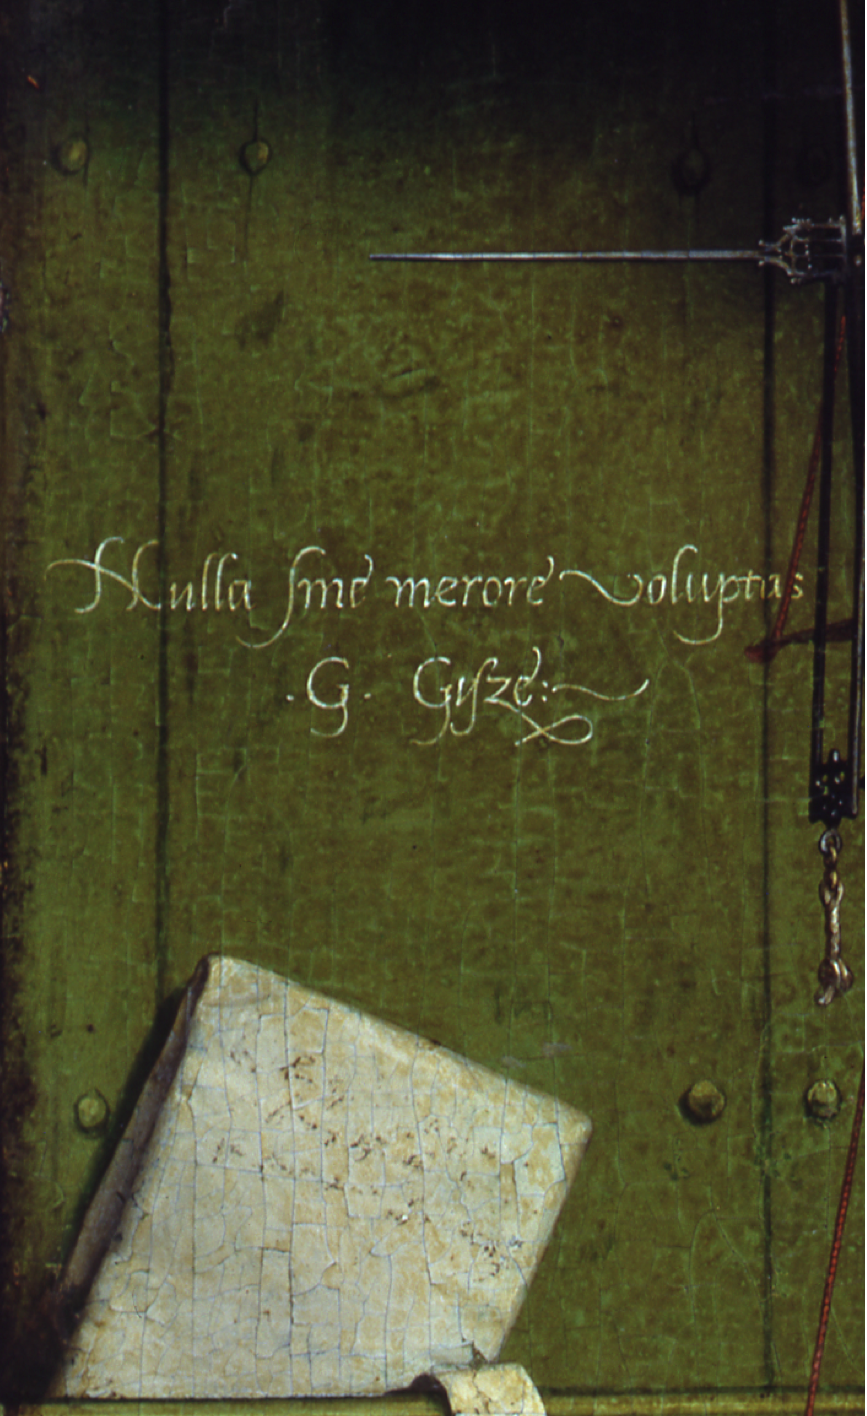 Nulla sine merore voluptas
·G· Gisze: